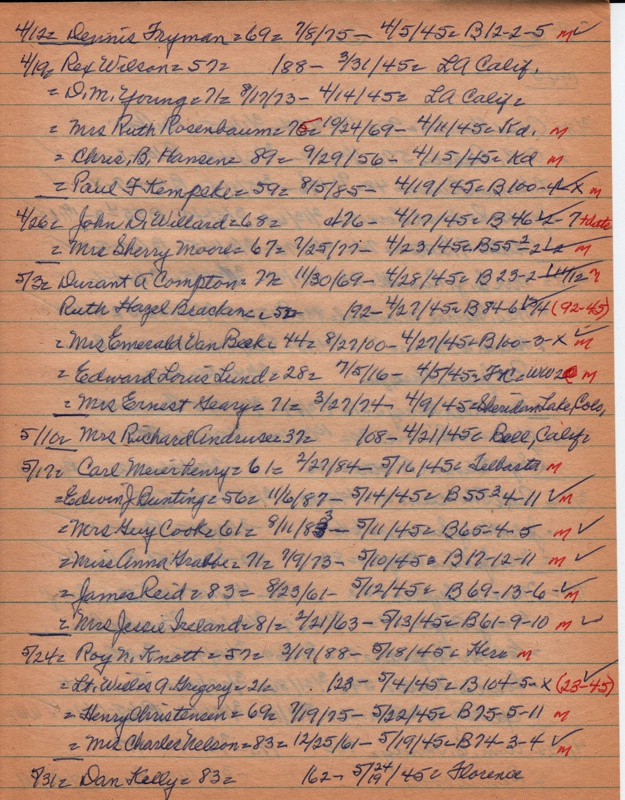 4/12= Dennis Fryman = 69= 7/8/75 - 4/5/45= B12-2-5 m ✓
4/19= Rex Wilson = 57= 188 - 3/31/45= LA Calif.
= D.M. Young = 71= 8/17/73 - 4/14/45= LA Calif=
= Mrs Ruth Rosenbaum = 75= 10/24/69 - 4/11/45= Kd. m
= Chris. B. Hansen = 89= 9/29/56 - 4/15/45= Kd m
= Paul F Kempske = 59= 8/5/85 - 4/19/45= B100-4-X m
4/26= John D. Willard = 68= 176 - 4/17/45= B46 - 7 + date
= Mrs Sherry Moore = 67= 7/25/77 - 4/23/45= B55 2-2 ✓ m
5/3= Durant A Compton = 77= 11/30/69 - 4/28/45= B23-2
Ruth Hazel Bracken = 52 192 - 4/27/45= B84 (92-45)
= Mrs Emerald Van Beek = 44= 8/27/00 - 4/27/45= B100-3-X ✓ m
= Edward Louis Lund = 28= 7/5/16 - 4/5/45= WW2 m
= Mrs Ernest Geary = 71= 3/27/74 - 4/9/45= Sheridan Lake, Colo,
5/10= Mrs Richard Andrus = 37= 108 - 4/21/45= Bell, Calif=
5/17= Carl Meier Henry = 61= 2/27/84 - 5/16/45= m
= Edwin J Bunting = 56= 11/6/87 - 5/14/45= B55 2 4-11 ✓ m
= Mrs Guy Cook = 61= 8/11/83 - 5/11/45= B65-4-5 m ✓
= Miss Anna Grabbe = 71= 7/9/73 - 5/10/45= B17-12-11 m ✓
= James Reid = 83= 8/23/61 - 5/12/45= B69-13-6 ✓ m
= Mrs Jessie Ireland = 81= 2/21/63 - 5/13/45= B61-9-10 m ✓
5/24= Roy N. Knott = 57= 3/19/88 - 5/18/45= Here m
= Lt. Willis A. Gregory = 21= 123 - 5/4/45= B104-5-X (23-45)
= Henry Christensen = 69= 7/19/75 - 5/22/45= B75-5-11 m
= Mrs Charles Nelson = 83= 12/25/61 - 5/19/45= B74-3-4 ✓ m
5/31= Dan Kelly = 83= 162 - 5/24/19/45= Florence